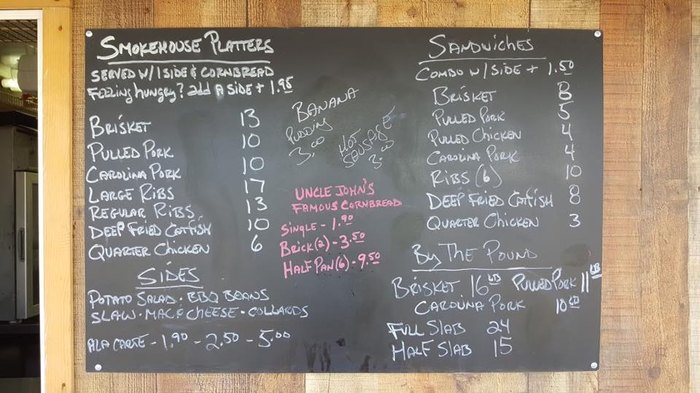 SMOKEHOUSE PLATTERS
SERVED W/ 1 SIDE & CORNBREAD
FEELING HUNGRY? ADD A SIDE + 1.95
BRISKET 13
PULLED PORK 10
CAROLINA PORK 10
LARGE RIBS 17
REGULAR RIBS 13
DEEP FRIED CATFISH 10
QUARTER CHICKEN 6
SIDES
POTATO SALAD · BBQ BEANS
SLAW · MAC & CHEESE · COLLARDS
ALA CARTE - 1.90 - 2.50 - 5.00
BANANA
PUDDING
3.00
HOT
SAUSAGE
3.00
UNCLE JOHN'S
FAMOUS CORNBREAD
SINGLE - 1.90
BRICK (2) - 3.50
HALF PAN (6) - 9.50
SANDWICHES
COMBO W/ SIDE + 1.50
BRISKET 8
PULLED PORK 5
PULLED CHICKEN 4
CAROLINA PORK 4
RIBS (6) 10
DEEP FRIED CATFISH 8
QUARTER CHICKEN 3
BY THE POUND
BRISKET 16 LB PULLED PORK 11 LB
CAROLINA PORK 10 LB
FULL SLAB 24
HALF SLAB 15